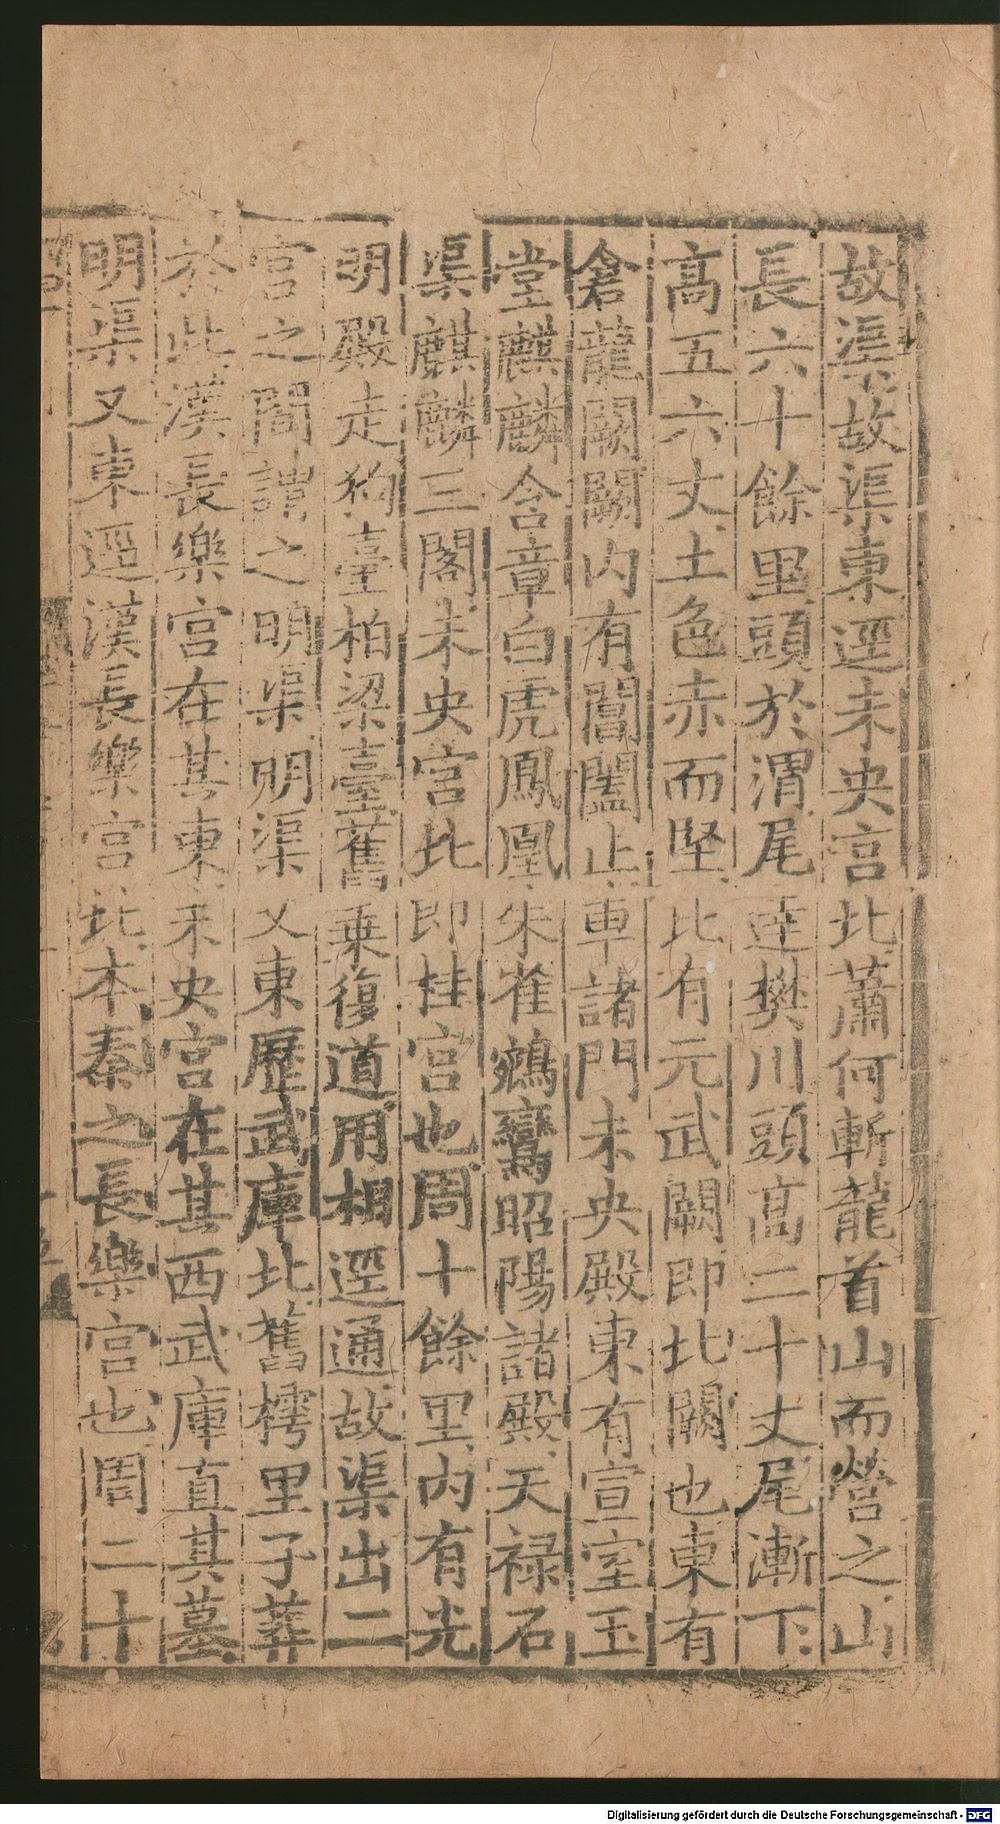 故渠故渠東逕未央宫北蕭何斬龍首山而營之山
長六十餘里頭於渭尾達樊川頭高二十丈尾漸下
高五六丈土色赤而堅北有元武闕即北闕也東有
倉龍闕闕内有閶闔止車諸門未央殿東有宣室玉
堂麒麟含章白虎鳳凰朱雀鵷鸞昭陽諸殿天禄石
渠麒麟三閣未央宫北即桂宫也周十餘里内有光
明殿走狗臺柏梁臺舊乗復道用相逕通故渠出二
宫之間謂之明渠明渠又東歷武庫北舊樗里子葬
於此漢長樂宫在其東未央宫在其西武庫直其墓
明渠又東逕漢長樂宫北本秦之長樂宫也周二十
Digitalisierung gefördert durch die Deutsche Forschungsgemeinschaft - DFG